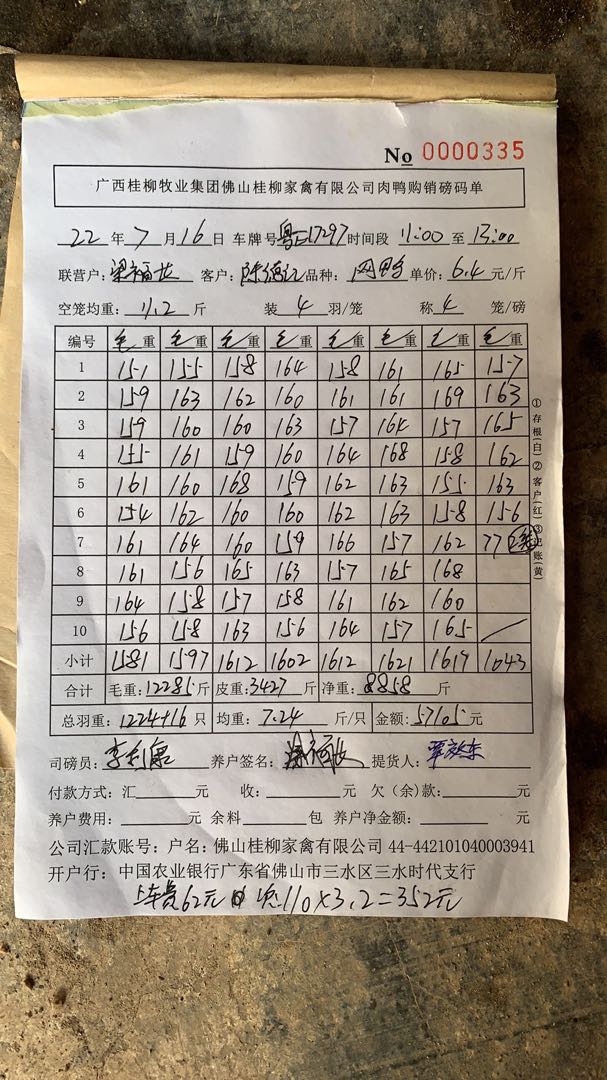 No 0000335
广西桂柳牧业集团佛山桂柳家禽有限公司肉鸭购销磅码单
22 年 7 月 16 日 车牌号 粤E17297 时间段 11:00 至 13:00
联营户: 梁福长 客户: 陈德江 品种: 网鸭 单价: 6.4 元/斤
空笼均重: 11.2 斤 装 4 羽/笼 称 4 笼/磅
编号 毛重 毛重 毛重 毛重 毛重 毛重 毛重 毛重
1 151 155 158 164 158 161 165 157
2 159 163 162 160 161 161 169 163
3 159 160 160 163 157 164 157 165
4 155 161 159 160 164 168 158 162
5 161 160 168 159 162 163 155 163
6 154 162 160 160 162 163 158 156
7 161 164 160 159 166 157 162 77 2笼
8 161 156 165 163 157 165 168
9 164 158 157 158 161 162 160
10 156 158 163 156 164 157 165 /
小计 1581 1597 1612 1602 1612 1621 1617 1043
合计 毛重: 12285 斤 皮重: 3427 斤 净重: 8858 斤
总羽重: 1224+16 只 均重: 7.24 斤/只 金额: 57105 元
①存根(白)②客户(红)③记账(黄)
司磅员: 李剑康 养户签名: 梁福长 提货人: 覃
付款方式: 汇 元 收: 元 欠(余)款: 元
养户费用: 元 余料 包 养户净金额: 元
公司汇款账号: 户名: 佛山桂柳家禽有限公司 44-442101040003941
开户行: 中国农业银行广东省佛山市三水区三水时代支行
上车费62元 110×3.2=352元